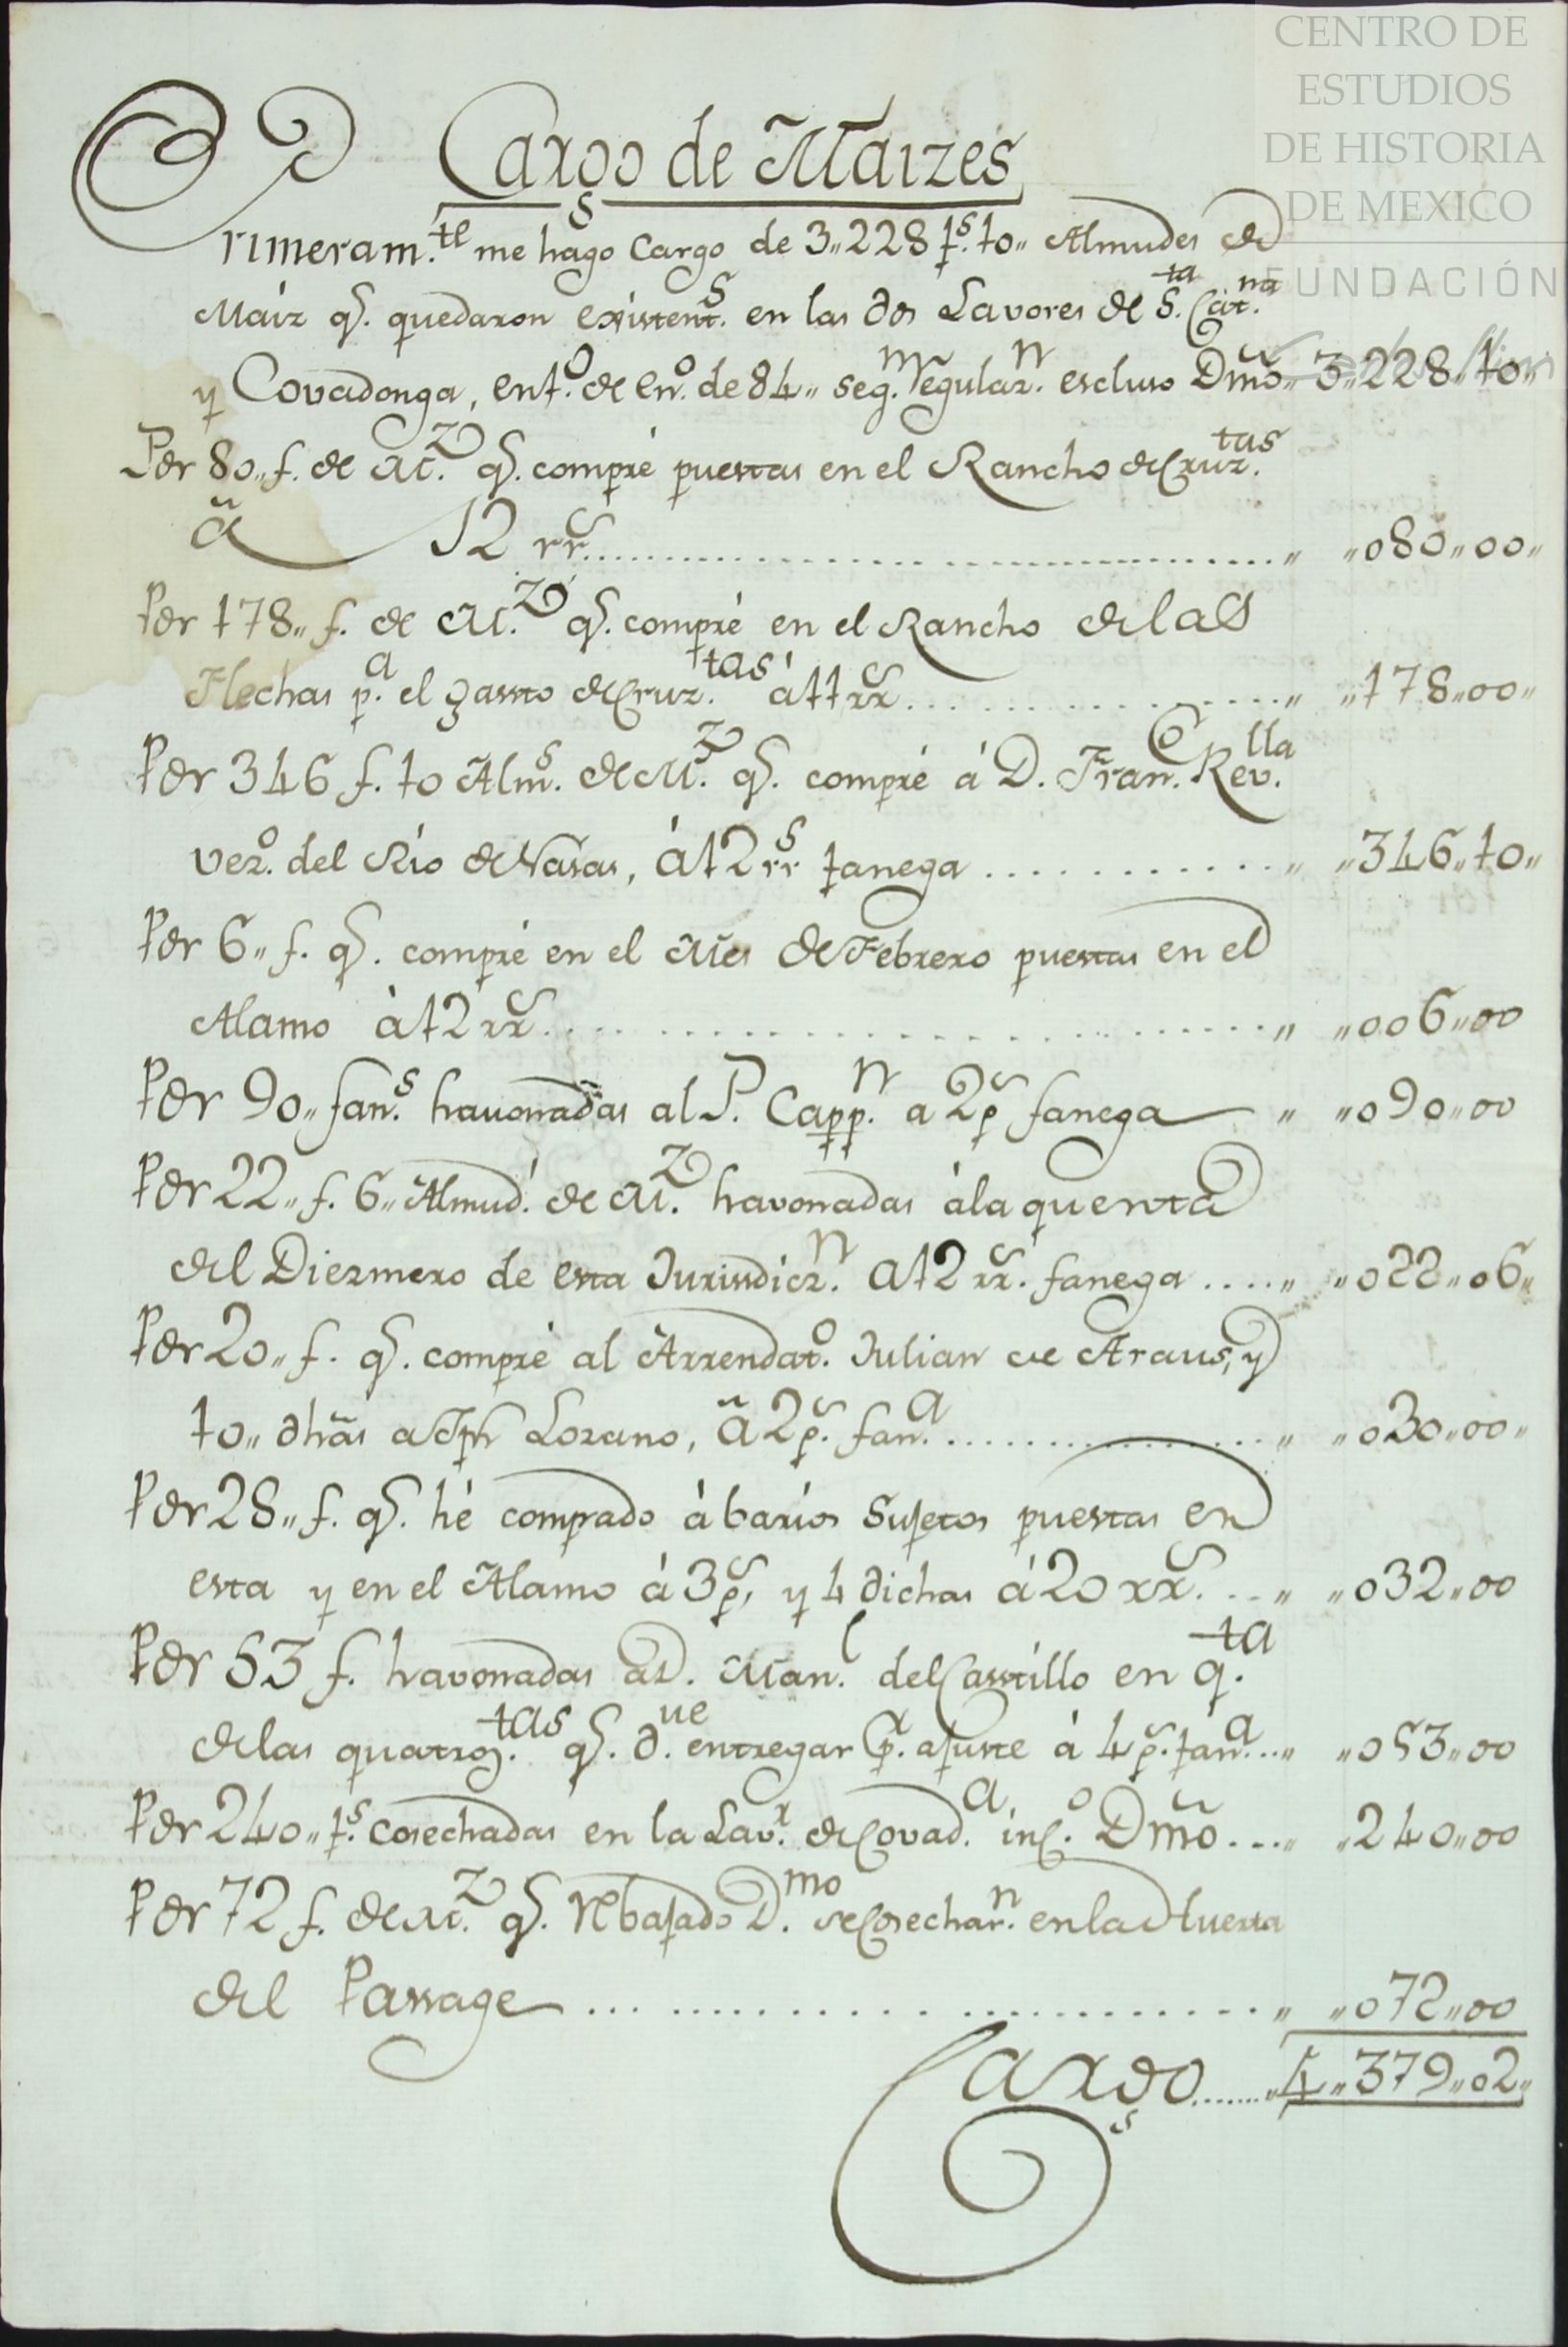 CENTRO DE
ESTUDIOS
DE HISTORIA
DE MEXICO
FUNDACIÓN
Cargo de Maizes
Primeram.te me hago Cargo de 3,,228 f.s 10,, Almudes de
Maiz q.e quedaron existent.s en las dos Lavores de S.ta Cat.na
y Covadonga, en 1.o de En.o de 84,, seg.n Regular.n escluso Dmõ,, 3,,228,,10,,
Por 80,, f. de M.z q.e compré puestas en el Rancho de Cruz.tas
ã 12 rr.s ,, ,,080,,00,,
Por 178,, f. de M.z q.e compré en el Rancho de las
Flechas p.a el gasto de Cruz.tas á 11 rr.s ,, ,,178,,00,,
Por 346 f. 10 Alm.s de M.z q.e compré á D. Fran.co Rev.lla
vez.o del Rio de Nasas, á 12 rr.s fanega ,, ,,346,,10,,
Por 6,, f. q.e compré en el Mes de Febrero puestas en el
Alamo à 12 rr.s ,, ,,006,,00
Por 90,, fan.s havonadas al P. Capp.n a 2 p.s fanega ,, ,,090,,00
Por 22,, f. 6,, Almud.s de M.z havonadas á la quenta
del Diezmero de esta Jurisdicz.n a 12 rr.s fanega ,, ,,022,,06,,
Por 20,, f. q.e compré al Arrendat.o Julian de Araus, y
10,, dhãs a Jph Lozano, ã 2 p.s fan.a ,, ,,030,,00,,
Por 28,, f. q.e hé comprado à barios Sujetos puestas en
esta y en el Alamo á 3 p.s, y 4 dichas á 20 rr.s ,, ,,032,,00
Por 53 f. havonadas a D. Man.l del Castillo en q.ta
de las quatroz.tas q.e d.ve entregar p.r ajuste á 4 p.s fan.a ,, ,,053,,00
Por 240,, f.s cosechadas en la Lav.r de Covad.a incl.o Dmõ ,, ,,240,,00
Por 72 f. de M.z q.e Rebajado D.mo se Cosechar.n en la Huerta
del Passage ,, ,,072,,00
Cargo ,,4,,379,,02,,